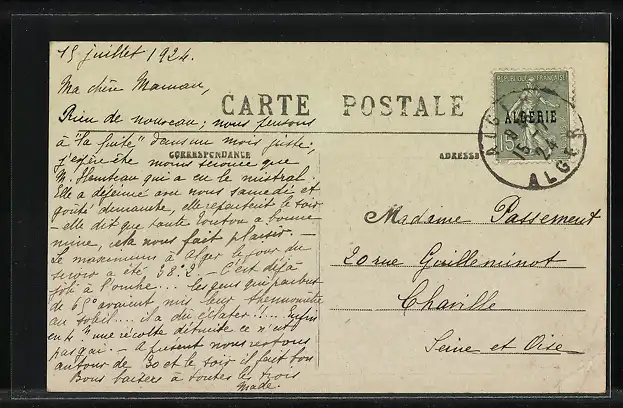 15 juillet 1924.
Ma chère Maman,
CARTE POSTALE
CORRESPONDANCE
ADRESSE
Rien de nouveau ; nous pensons
à "la fuite" dans un mois juste ;
j'espère être moins secouée que
M. qui a eu le mistral.
Elle a déjeuné avec nous samedi et
goûté dimanche, elle repartait le soir
- elle dit que tante a bonne
mine, cela nous fait plaisir. -
Le maximum à Alger le jour du
a été 38°2. - C'est déjà
joli à l'ombre... les gens qui parlent
de 65° avaient mis leur thermomètre
au soleil... il a dû éclater !... Enfin
une récolte détruite ce n'est
pas gai. - A présent nous restons
autour de 30 et le soir il fait bon
Bons baisers à toutes les trois
Made.
REPUBLIQUE FRANÇAISE
ALGERIE
15
ALGER
15 -7
24
ALGER
Madame Passement
20 rue Guilleminot
Chaville
Seine et Oise